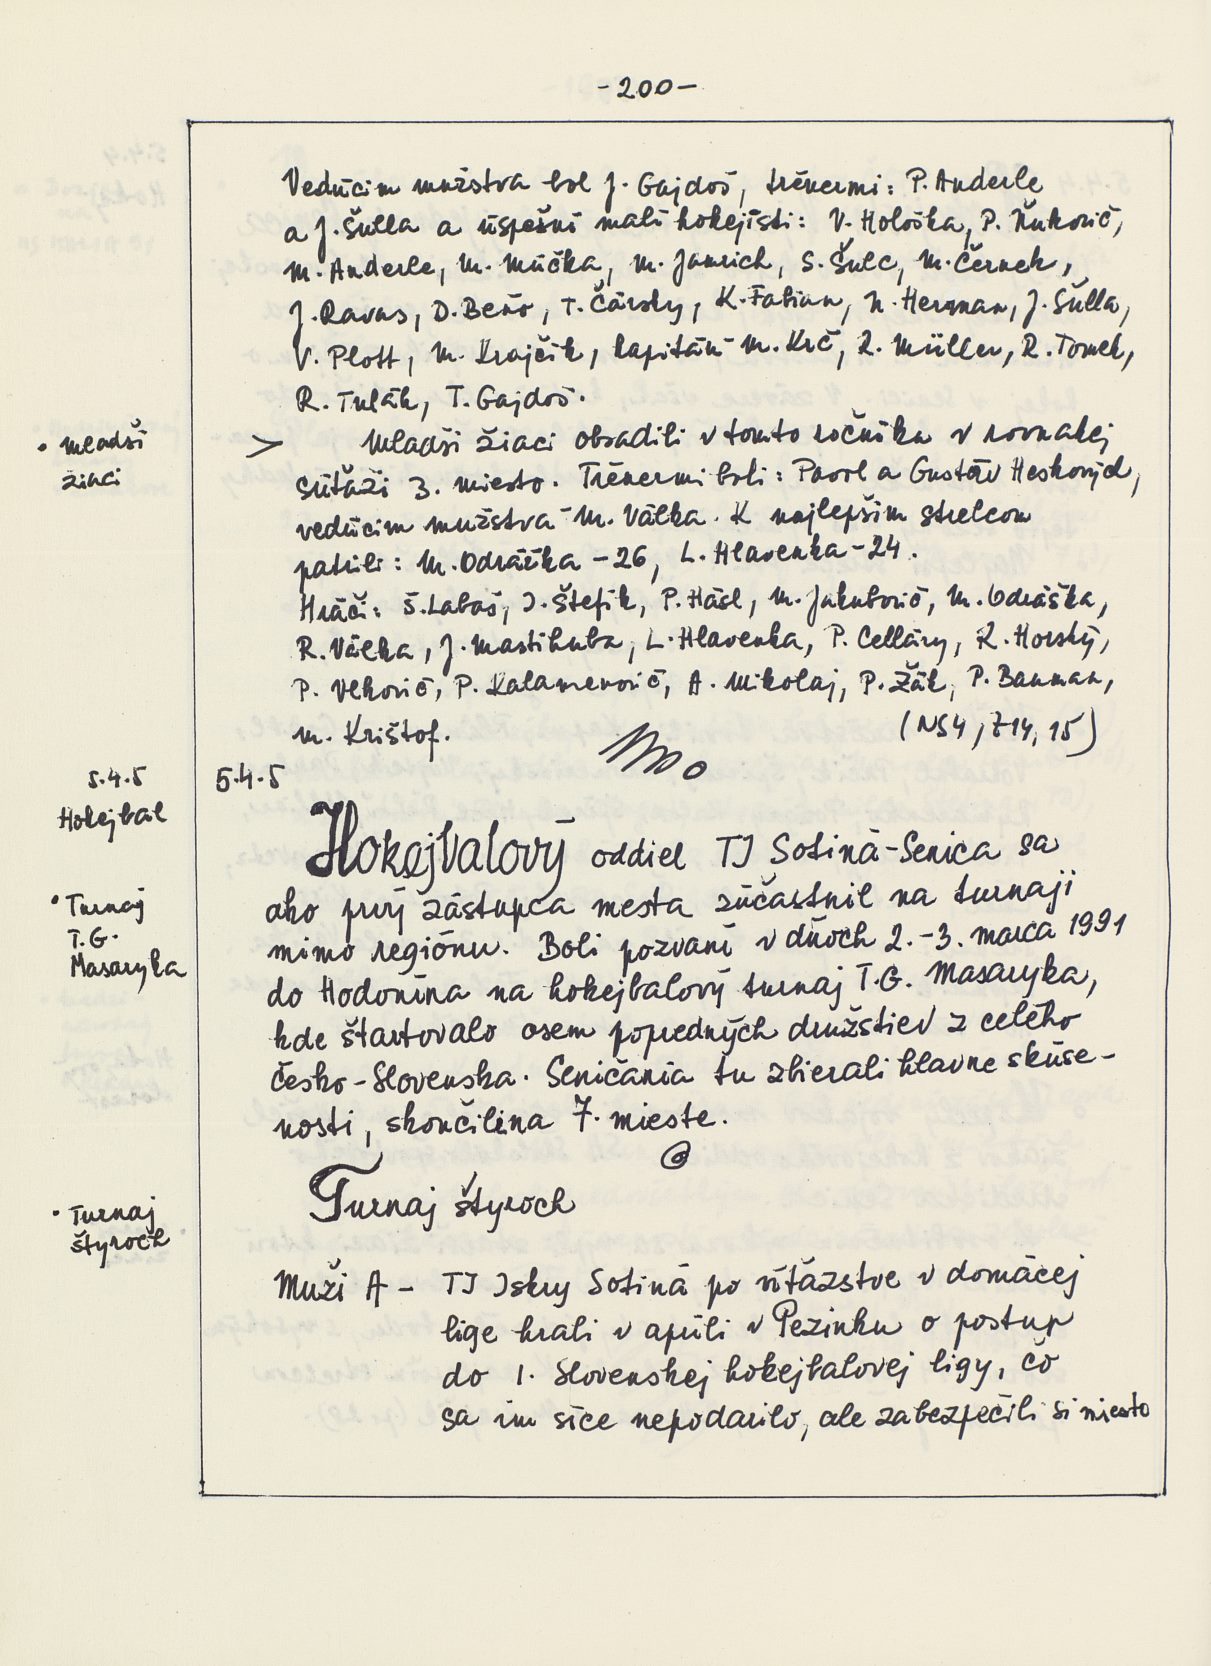 -200-
Vedúcim mužstva bol J. Gajdoš, trénermi: P. Anderle
a J. Šulla a úspešní malí hokejisti: V. Holička, P. Ňukovič,
M. Anderle, M. Múčka, M. Jamrich, S. Šulc, M. Černek,
J. Ravas, D. Beňo, T. Čársky, K. Fabian, N. Herman, J. Šulla,
V. Plott, M. Krajčík, kapitán M. Krč, R. Müller, R. Tomek,
R. Tulák, T. Gajdoš.
• Mladší
žiaci
> Mladší žiaci obsadili v tomto ročníku v rovnakej
súťaži 3. miesto. Trénermi boli: Pavol a Gustáv Heskových,
vedúcim mužstva M. Válka. K najlepším strelcom
patrili: M. Odráška - 26, L. Hlavenka - 24.
Hráči: Š. Labaš, J. Štefík, P. Hásl, M. Jakubovič, M. Odráška,
R. Válka, J. Mastihuba, L. Hlavenka, P. Celláry, R. Horský,
P. Vlkovič, P. Kalamenovič, A. Mikolaj, P. Žák, P. Bauman,
M. Krištof. (NS4, Z14, 15)
5.4.5
Hokejbal
5.4.5
Hokejbalový oddiel TJ Sotiná-Senica sa
ako prvý zástupca mesta zúčastnil na turnaji
mimo regiónu. Boli pozvaní v dňoch 2.-3. marca 1991
do Hodonína na hokejbalový turnaj T.G. Masaryka,
kde štartovalo osem popredných družstiev z celého
Česko-Slovenska. Seničania tu zbierali hlavne skúse-
nosti, skončili na 7. mieste.
• Turnaj
T.G.
Masaryka
Turnaj štyroch
• Turnaj
štyroch
Muži A - TJ Iskry Sotiná po víťazstve v domácej
lige hrali v apríli v Pezinku o postup
do 1. Slovenskej hokejbalovej ligy, čo
sa im síce nepodarilo, ale zabezpečili si miesto